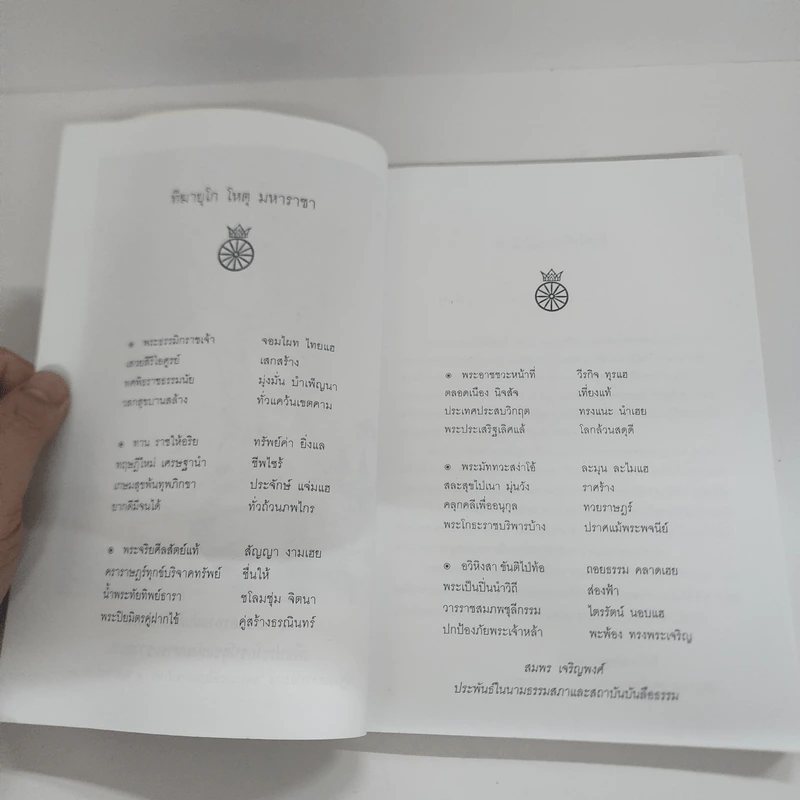 ทีฆายุโก โหตุ มหาราชา
๏ พระธรรมิกราชเจ้า จอมไผท ไทยแฮ
เสวยสิริไอศูรย์ เสกสร้าง
ทศพิธราชธรรมนัย มุ่งมั่น บำเพ็ญนา
เสกสุขบานสล้าง ทั่วแคว้นเขตคาม
๏ ทาน ราชให้อริย ทรัพย์ค่า ยิ่งแล
ทฤษฎีใหม่ เศรษฐานำ ชีพไซร้
เกษมสุขพ้นทุพภิกขา ประจักษ์ แจ่มแฮ
ยากดีมีจนได้ ทั่วถ้วนภพไกร
๏ พระจริยศีลสัตย์แท้ สัญญา งามเฮย
คราราษฎร์ทุกข์บริจาคทรัพย์ ชื่นให้
น้ำพระทัยทิพย์ธารา ชโลมชุ่ม จิตนา
พระปิยมิตรคู่ฝากไข้ คู่สร้างธรณินทร์
๏ พระอาชชวะหน้าที่ วีรกิจ ทุรแฮ
ตลอดเนือง นิจสัจ เที่ยงแท้
ประเทศประสบวิกฤต ทรงแนะ นำเฮย
พระประเสริฐเลิศแล้ โลกล้วนสดุดี
๏ พระมัททวะสง่าโอ้ ละมุน ละไมแฮ
สละสุขไปเนา มุ่นวัง ราศร้าง
คลุกคลีเพื่ออนุกูล ทวยราษฎร์
พระโกธะราชบริพารบ้าง ปราศแม้พระพจนีย์
๏ อวิหิงสา ขันติไป่ท้อ ถอยธรรม คลาดเฮย
พระเป็นปิ่นนำวิถี ส่องฟ้า
วารราชสมภพชุลีกรรม ไตรรัตน์ นอบแฮ
ปกป้องภัยพระเจ้าหล้า พะพ้อง ทรงพระเจริญ
สมพร เจริญพงศ์
ประพันธ์ในนามธรรมสภาและสถาบันบันลือธรรม